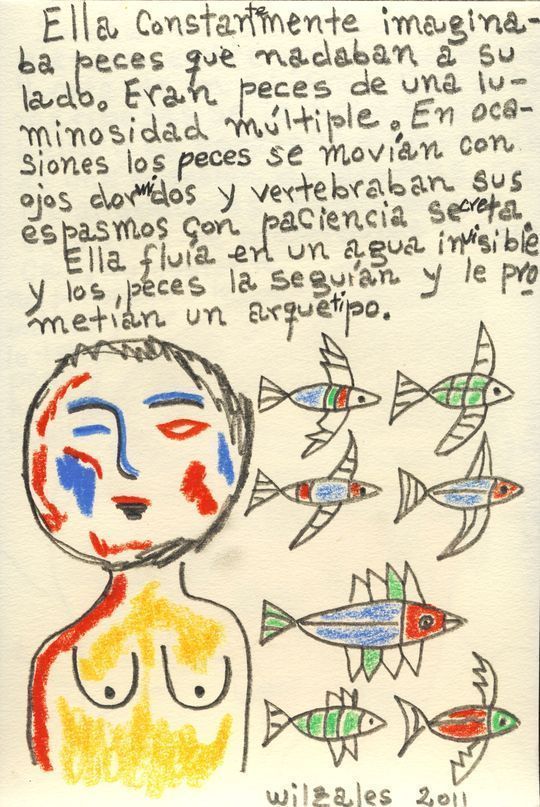 Ella constantemente imagina-
ba peces que nadaban a su
lado. Eran peces de una lu-
minosidad múltiple. En oca-
siones los peces se movían con
ojos dormidos y vertebraban sus
espasmos con paciencia secreta.
Ella fluía en un agua invisible
y los peces la seguían y le pro
metían un arquetipo.
wilzales 2011